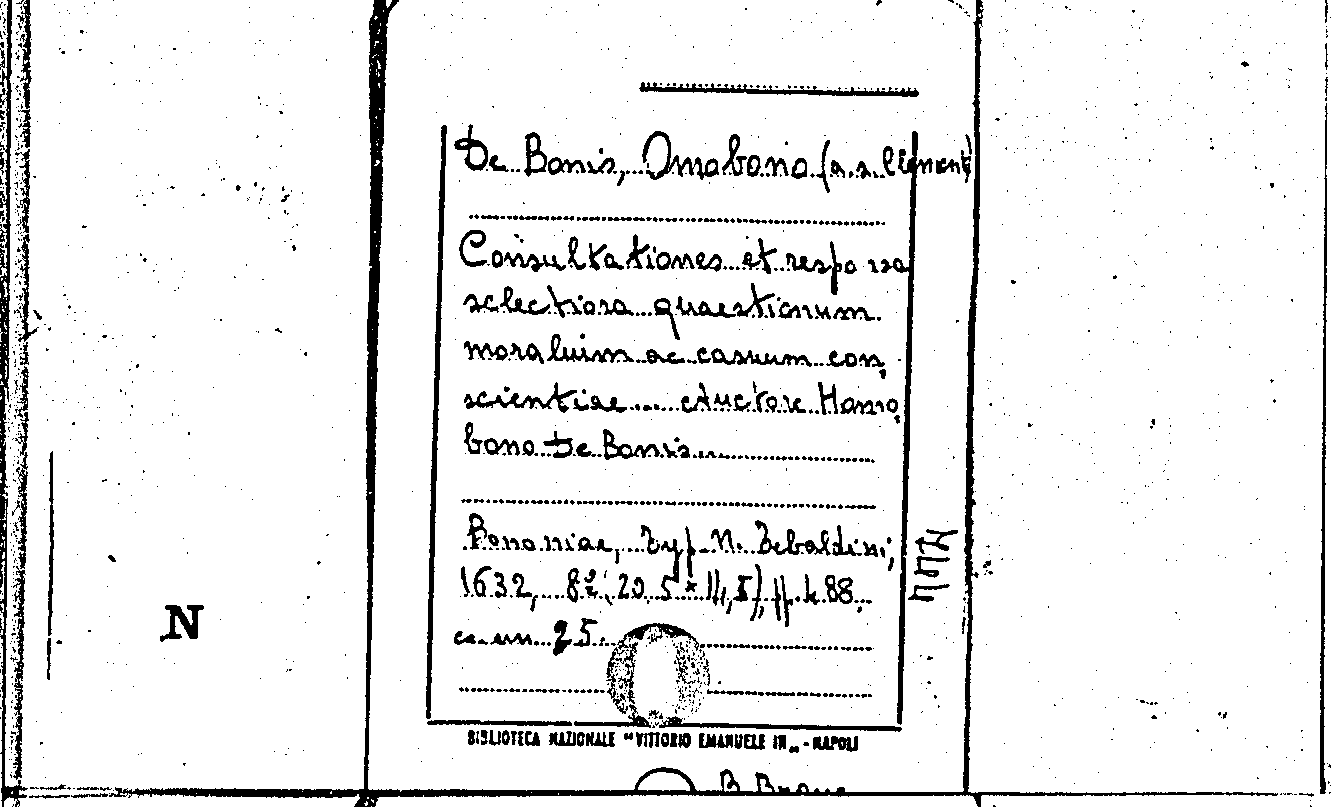 De Bonis, Omobono (a. s. Clement)
Consultationes et responsa
selectiora quaestionum
moraluim ac casuum con,
scientiae... auctore Homo,
bono De Bonis...
Bononiae, Typ. N. Tebaldini,
1632, 8º (20,5 x 11,5), pp. 488.
25.
N
BIBLIOTECA NAZIONALE "VITTORIO EMANUELE III„ - NAPOLI